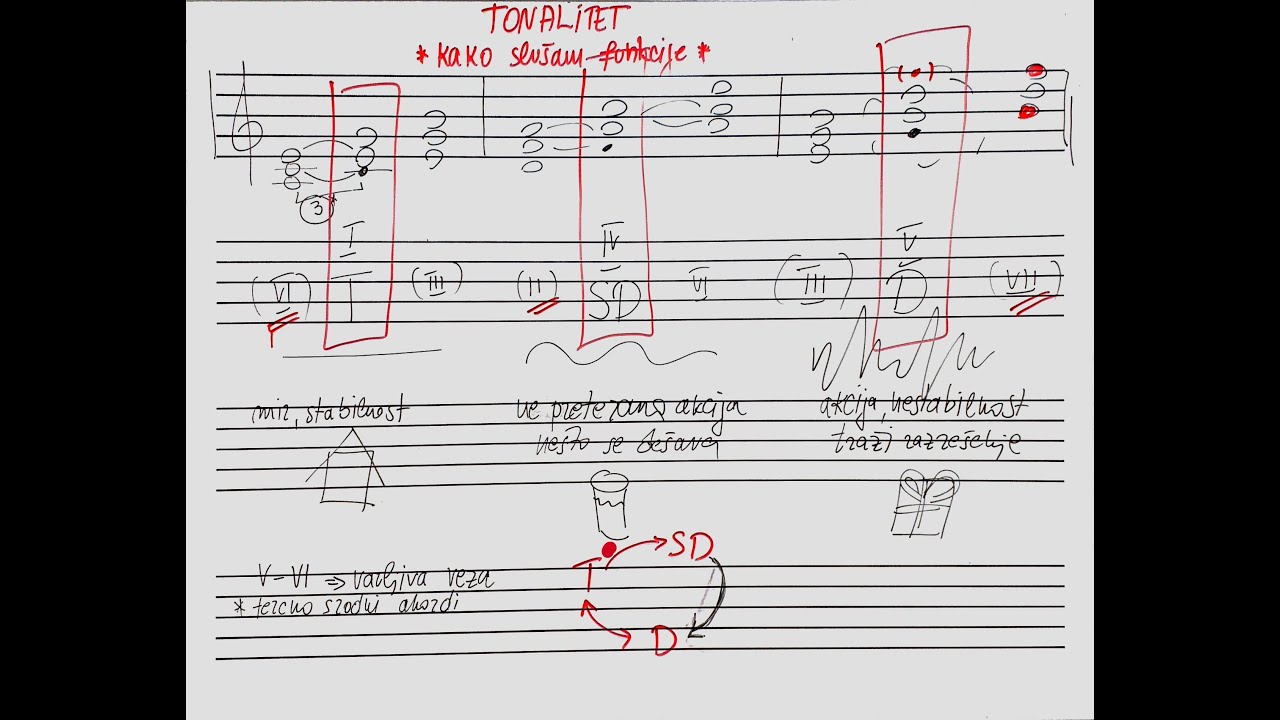 TONALITET
* kako slušam funkcije *
3
I IV V
(VI) T (III) (II) SD VI (III) D (VII)
mir, stabilnost ne pretezana akcija akcija, nestabilnost
nešto se dešava traži razrešenje
V-VI ⇒ varljiva veza
* tercno srodni akordi
T SD
D